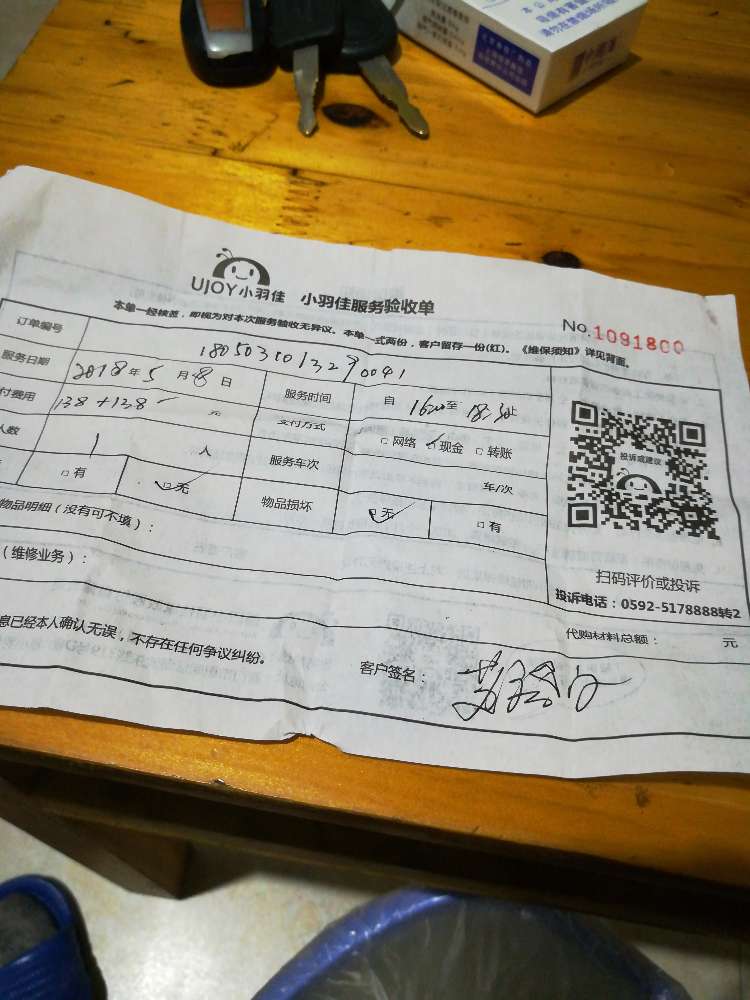 UJOY小羽佳 小羽佳服务验收单
No.1091800
本单一经核签，即视为对本次服务验收无异议。本单一式两份，客户留存一份(红)。《维保须知》详见背面。
订单编号 1805031013290041
服务日期 2018年5月8日 服务时间 自 1620至 1830止
付费用 138+138 元 支付方式 □网络 □现金 □转账
人数 1 人 服务车次 车/次
□有 □无 物品损坏 □无 □有
物品明细（没有可不填）：
（维修业务）：
投诉或建议
扫码评价或投诉
投诉电话：0592-5178888转2
代购材料总额： 元
息已经本人确认无误，不存在任何争议纠纷。
客户签名：